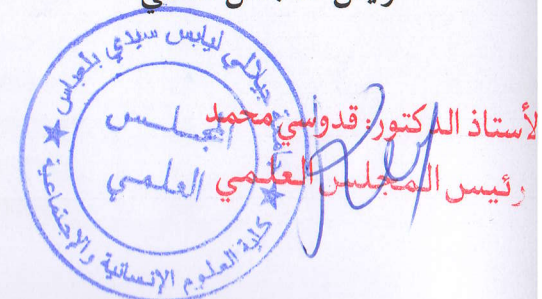 جامعة جيلالي ليابس سيدي بلعباس
المجلس
العلمي
كلية العلوم الإنسانية والإجتماعية
لأستاذ الدكتور: قدوسي محمد
رئيس المجلس العلمي